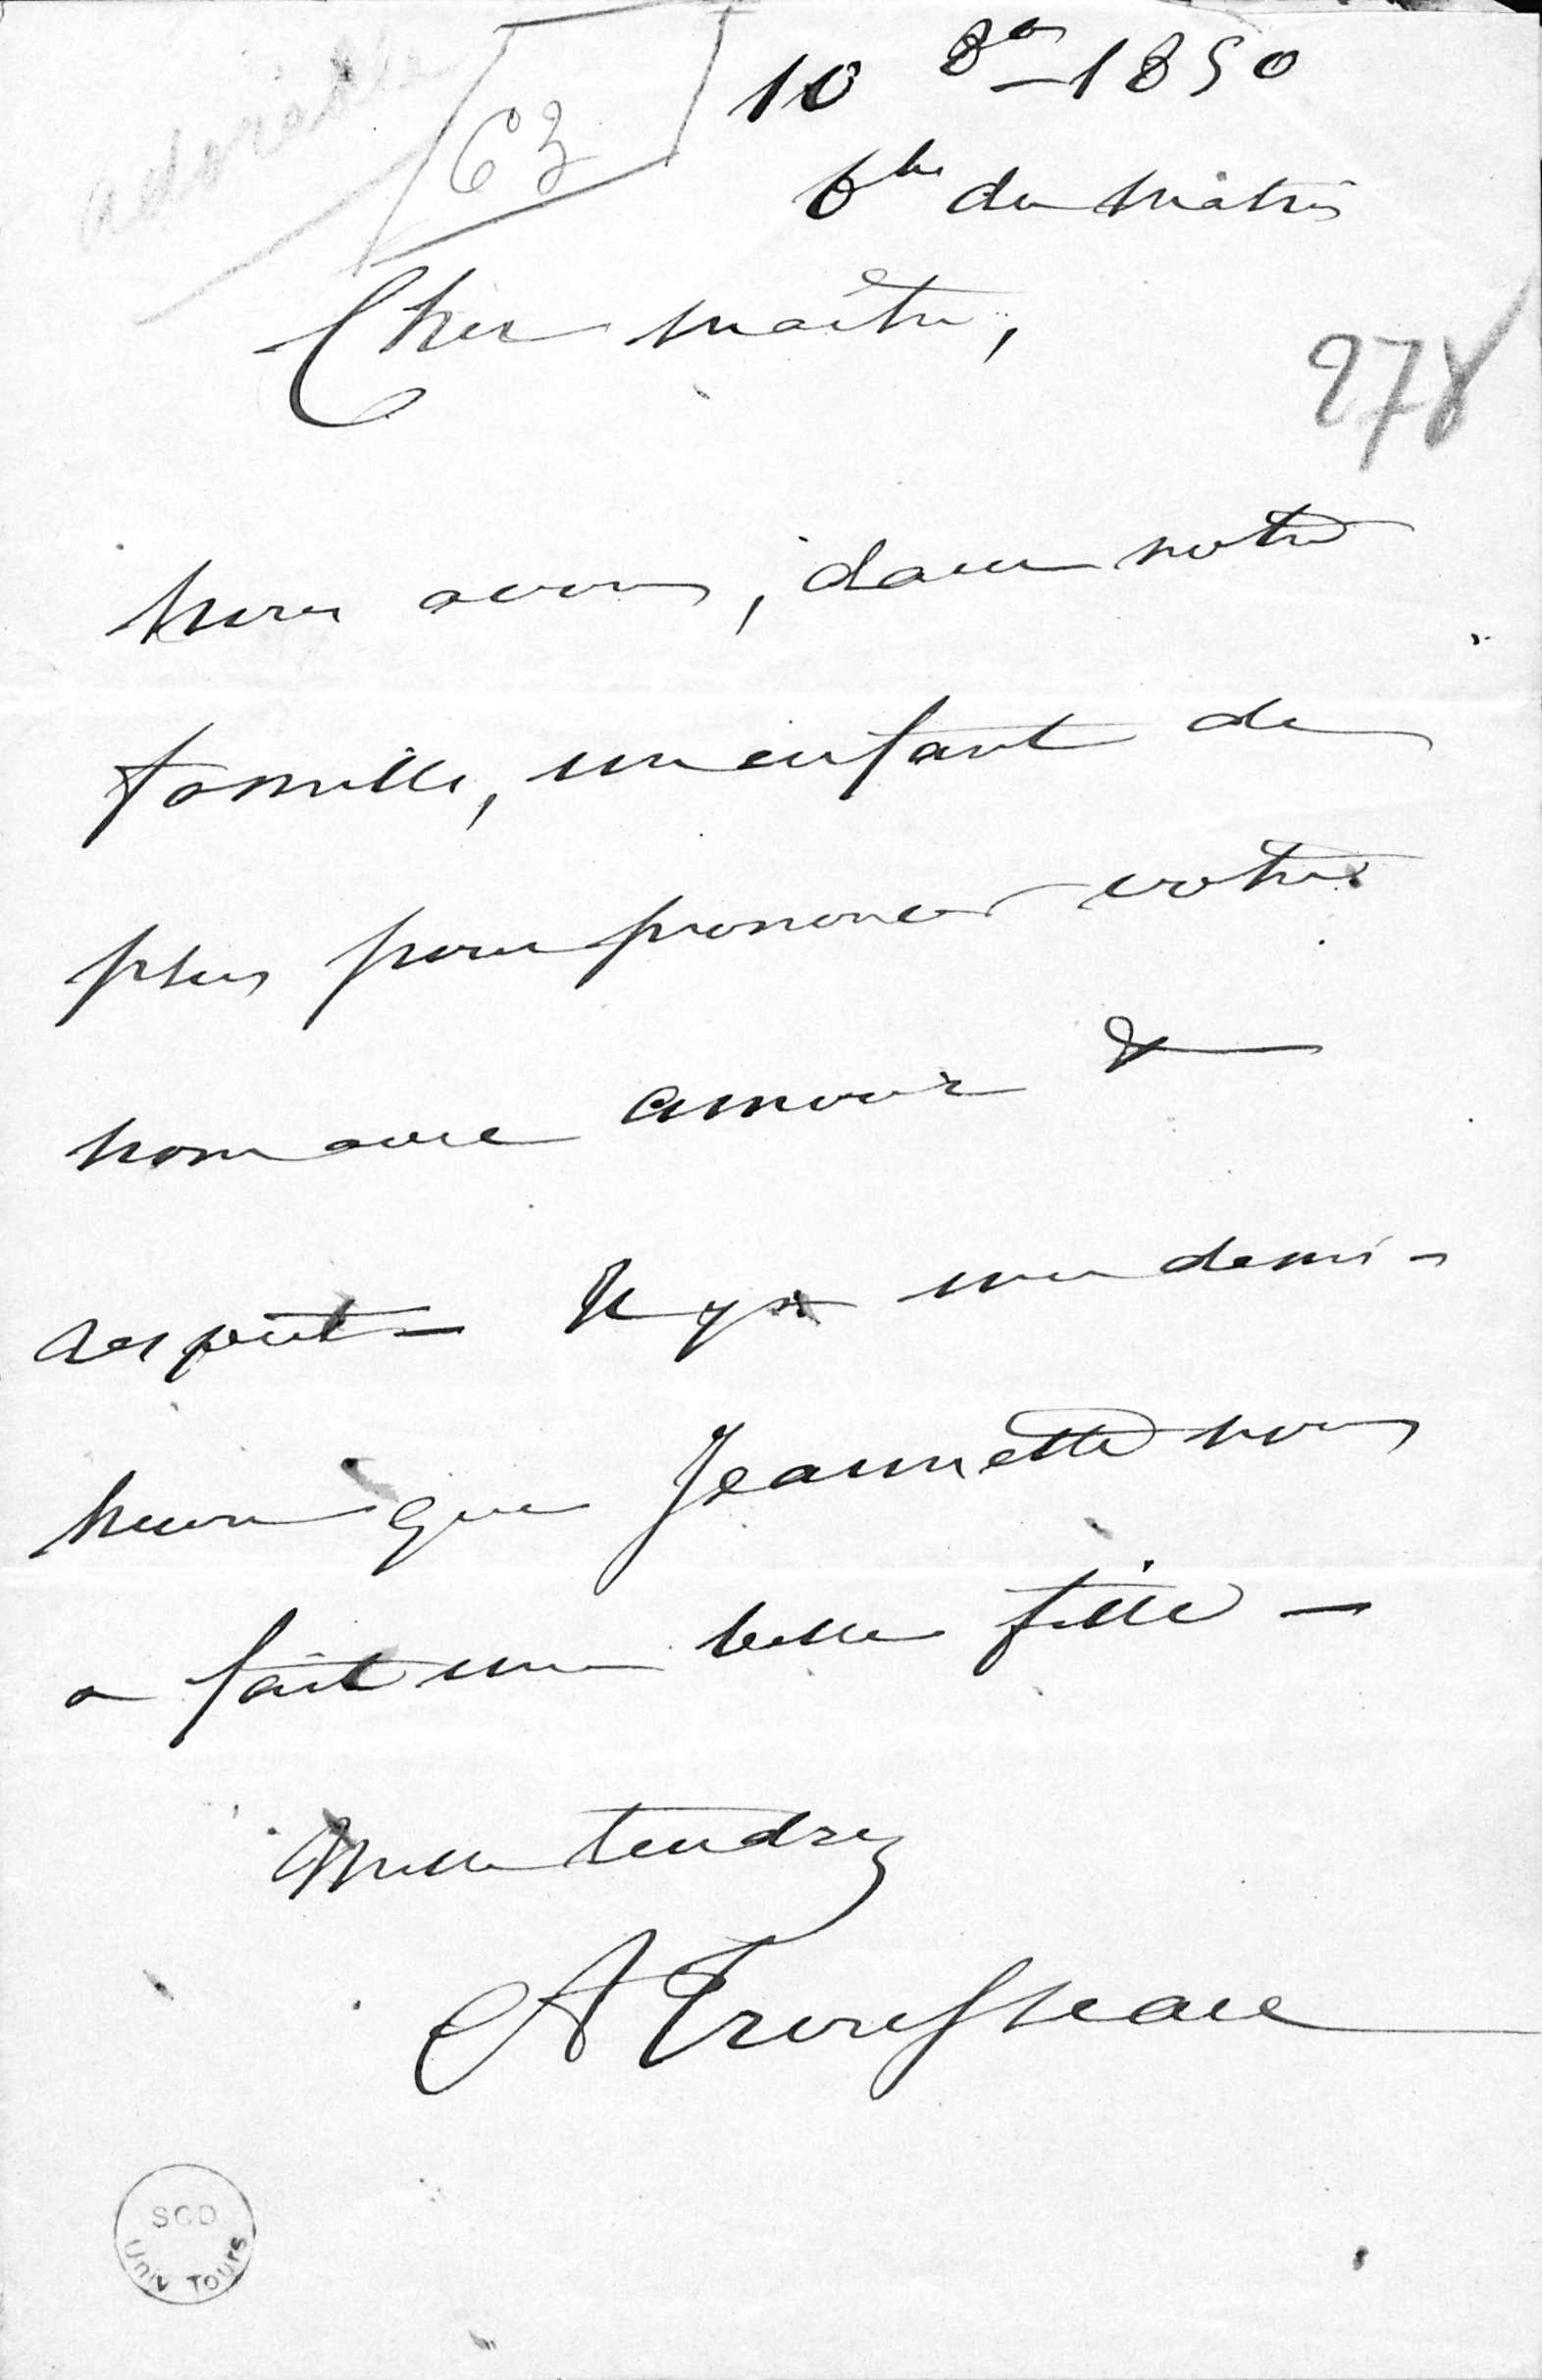 adorable
63
10 8bre 1850
6h du matin
Cher maître,
278
nous avons, dans notre
famille, un enfant de
plus pour prononcer votre
nom avec amour &
respect – Il y a une demi-
heure que Jeannette nous
a fait une belle fille –
Mille tendresses
A Trousseau
SCD
Univ Tours